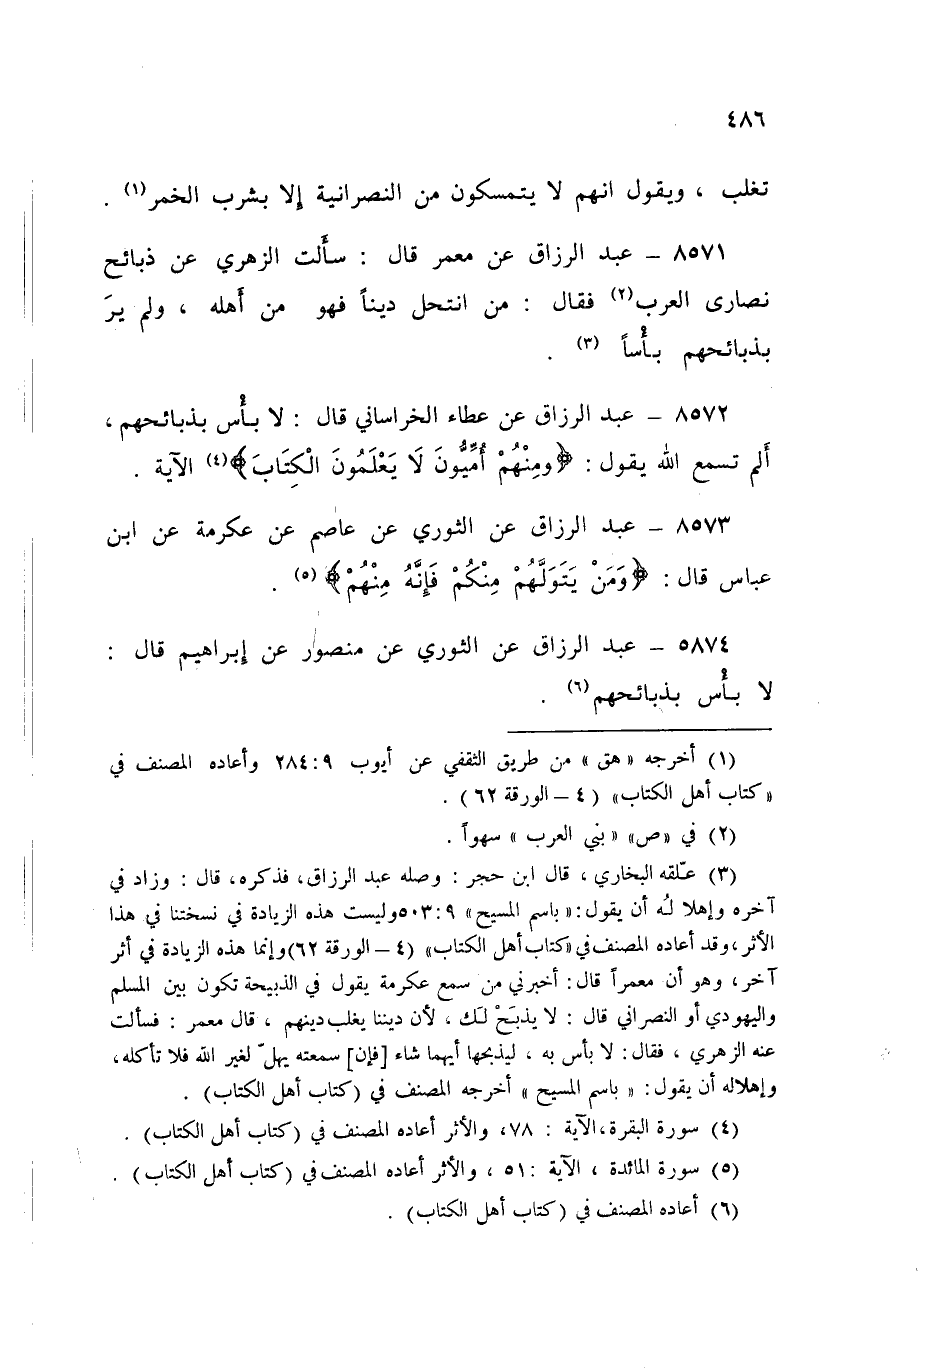 ٤٨٦
تغلب ، ويقول انهم لا يتمسكون من النصرانية إلا بشرب الخمر(١) .
٨٥٧١ – عبد الرزاق عن معمر قال : سألت الزهري عن ذبائح
نصارى العرب(٢) فقال : من انتحل ديناً فهو من أهله ، ولم يرَ
بذبائحهم بأساً (٣) .
٨٥٧٢ – عبد الرزاق عن عطاء الخراساني قال : لا بأس بذبائحهم ،
ألم تسمع الله يقول : ﴿ومِنْهُمْ أُمِّيُّونَ لَا يَعْلَمُونَ الْكِتَابَ﴾(٤) الآية .
٨٥٧٣ – عبد الرزاق عن الثوري عن عاصم عن عكرمة عن ابن
عباس قال : ﴿وَمَنْ يَتَوَلَّهُمْ مِنْكُمْ فَإِنَّهُ مِنْهُمْ﴾ (٥) .
٥٨٧٤ – عبد الرزاق عن الثوري عن منصور عن إبراهيم قال :
لا بأس بذبائحهم(٦) .
(١) أخرجه « هق » من طريق الثقفي عن أيوب ٩ : ٢٨٤ وأعاده المصنف في
«كتاب أهل الكتاب» ( ٤ – الورقة ٦٢ ) .
(٢) في «ص» « بني العرب » سهواً .
(٣) علّقه البخاري ، قال ابن حجر : وصله عبد الرزاق، فذكره، قال : وزاد في
آخره وإهلا لُه أن يقول : « باسم المسيح » ٩ : ٥٠٣ وليست هذه الزيادة في نسختنا في هذا
الأثر، وقد أعاده المصنف في «كتاب أهل الكتاب» (٤ – الورقة ٦٢) وإنما هذه الزيادة في أثر
آخر ، وهو أن معمراً قال : أخبرني من سمع عكرمة يقول في الذبيحة تكون بين المسلم
واليهودي أو النصراني قال : لا يذبَحْ لك ، لأن ديننا يغلب دينهم ، قال معمر : فسألت
عنه الزهري ، فقال : لا بأس به ، ليذبحها أيهما شاء [فإن] سمعته يهلّ لغير الله فلا تأكله،
وإهلاله أن يقول : « باسم المسيح » أخرجه المصنف في (كتاب أهل الكتاب) .
(٤) سورة البقرة، الآية : ٧٨، والأثر أعاده المصنف في (كتاب أهل الكتاب) .
(٥) سورة المائدة ، الآية : ٥١ ، والأثر أعاده المصنف في (كتاب أهل الكتاب) .
(٦) أعاده المصنف في (كتاب أهل الكتاب) .